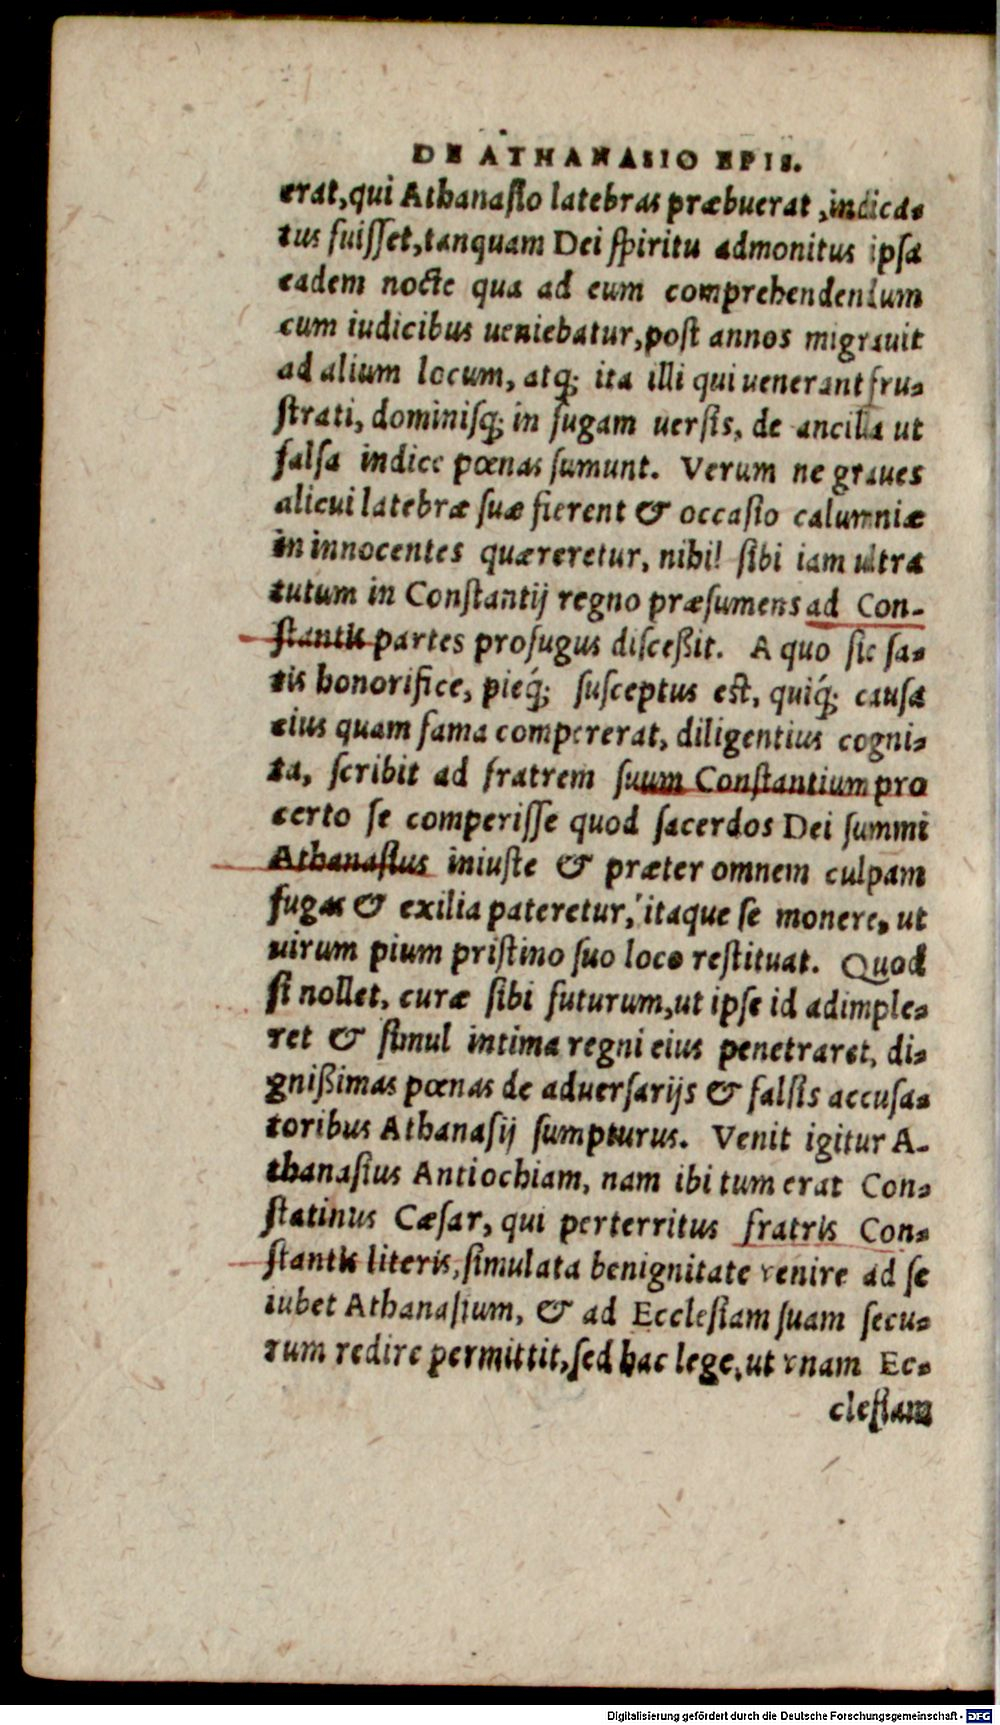 DE ATHANASIO EPIS.
erat, qui Athanasio latebras præbuerat, indica-
tus fuisset, tanquam Dei spiritu admonitus ipsa
eadem nocte qua ad eum comprehendendum
cum iudicibus ueniebatur, post annos migrauit
ad alium locum, atq; ita illi qui uenerant fru-
strati, dominisq; in fugam uersis, de ancilla ut
falsa indice pœnas sumunt. Verum ne graues
alicui latebræ suæ fierent & occasio calumniæ
in innocentes quæreretur, nihil sibi iam ultra
tutum in Constantij regno præsumens ad Con-
stantis partes profugus disceßit. A quo sic sa-
tis honorifice, pieq́; susceptus est, quiq́; causa
eius quam fama compererat, diligentius cogni-
ta, scribit ad fratrem suum Constantium pro
certo se comperisse quod sacerdos Dei summi
Athanasius iniuste & præter omnem culpam
fugas & exilia pateretur, itaque se monere, ut
uirum pium pristino suo loco restituat. Quod
si nollet, curæ sibi futurum, ut ipse id adimple-
ret & simul intima regni eius penetraret, di-
gnißimas pœnas de aduersarijs & falsis accusa-
toribus Athanasij sumpturus. Venit igitur A-
thanasius Antiochiam, nam ibi tum erat Con-
statinus Cæsar, qui perterritus fratris Con-
stantis literis, simulata benignitate venire ad se
iubet Athanasium, & ad Ecclesiam suam secu-
rum redire permittit, sed hac lege, ut vnam Ec-
clesiam
Digitalisierung gefördert durch die Deutsche Forschungsgemeinschaft - DFG